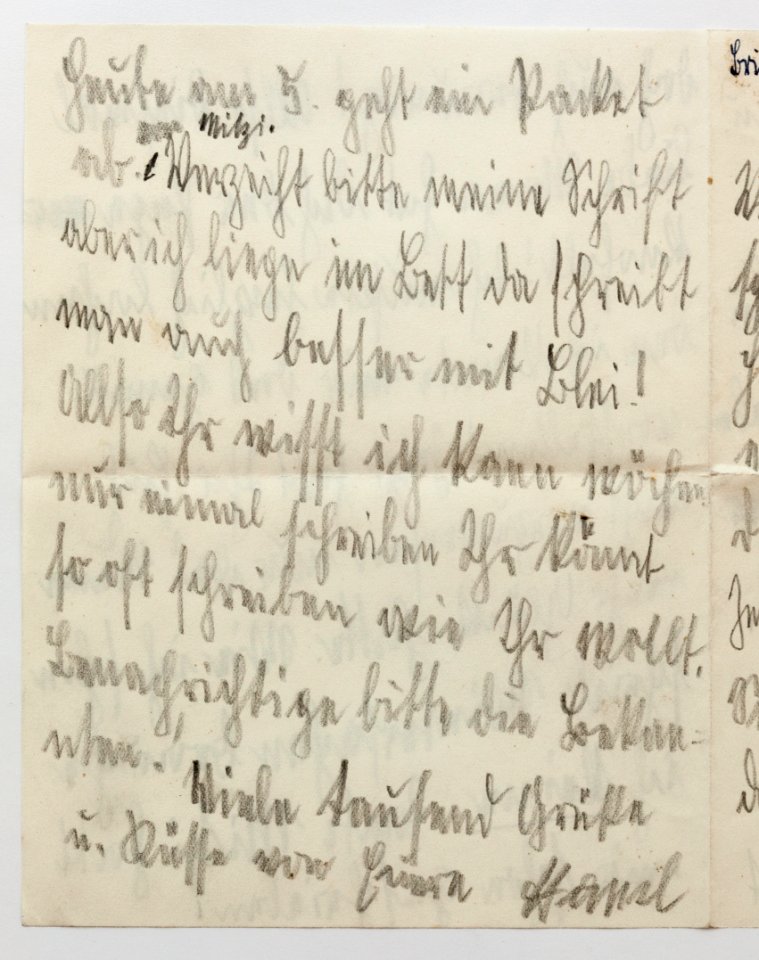 Heute am 5. geht ein Packet
Mitzi.
ab. Verzeiht bitte meine Schrift
aber ich liege im Bett da schreibt
man auch besser mit Blei!
Allso Ihr wisst ich kann wöchen
nur einmal schreiben Ihr könnt
so oft schreiben wie Ihr wollt.
Benachrichtige bitte die Bekan=
nten. Viele tausend Grüße
u. Küsse von Euere Hansl